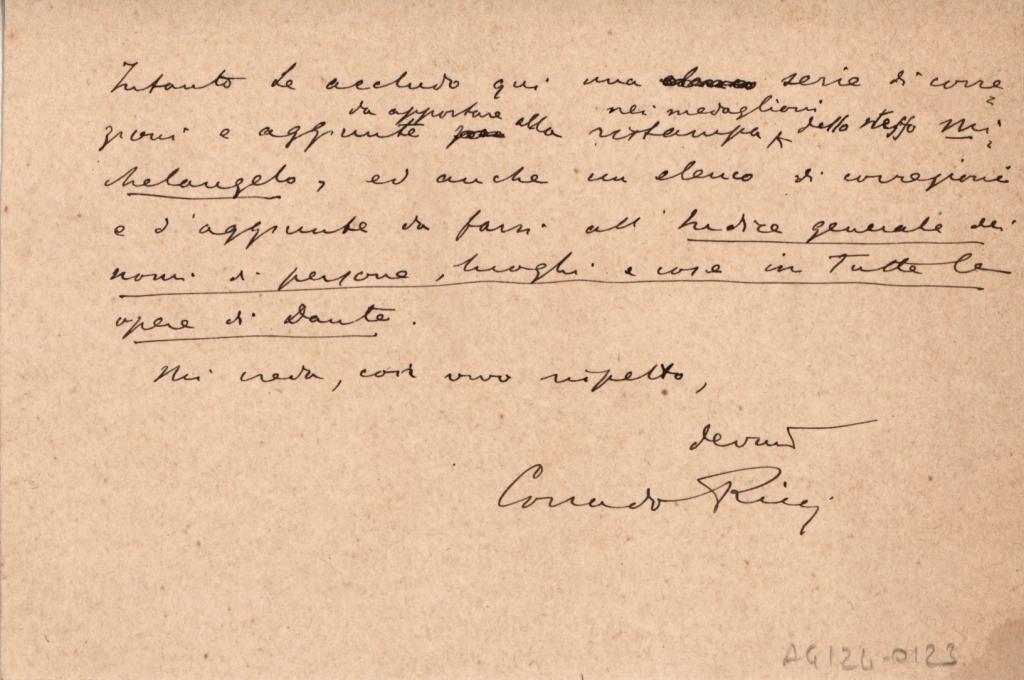 Intanto Le accludo qui una serie di corre=
zioni e aggiunte da apportare alla ristampa nei medaglioni dello stesso Mi=
chelangelo, ed anche un elenco di correzioni
e d'aggiunte da farsi all'Indice generale dei
nomi di persone, luoghi e cose in Tutte le
opere di Dante.
Mi creda, con vivo rispetto,
devmo
Corrado Ricci
AG124-0123